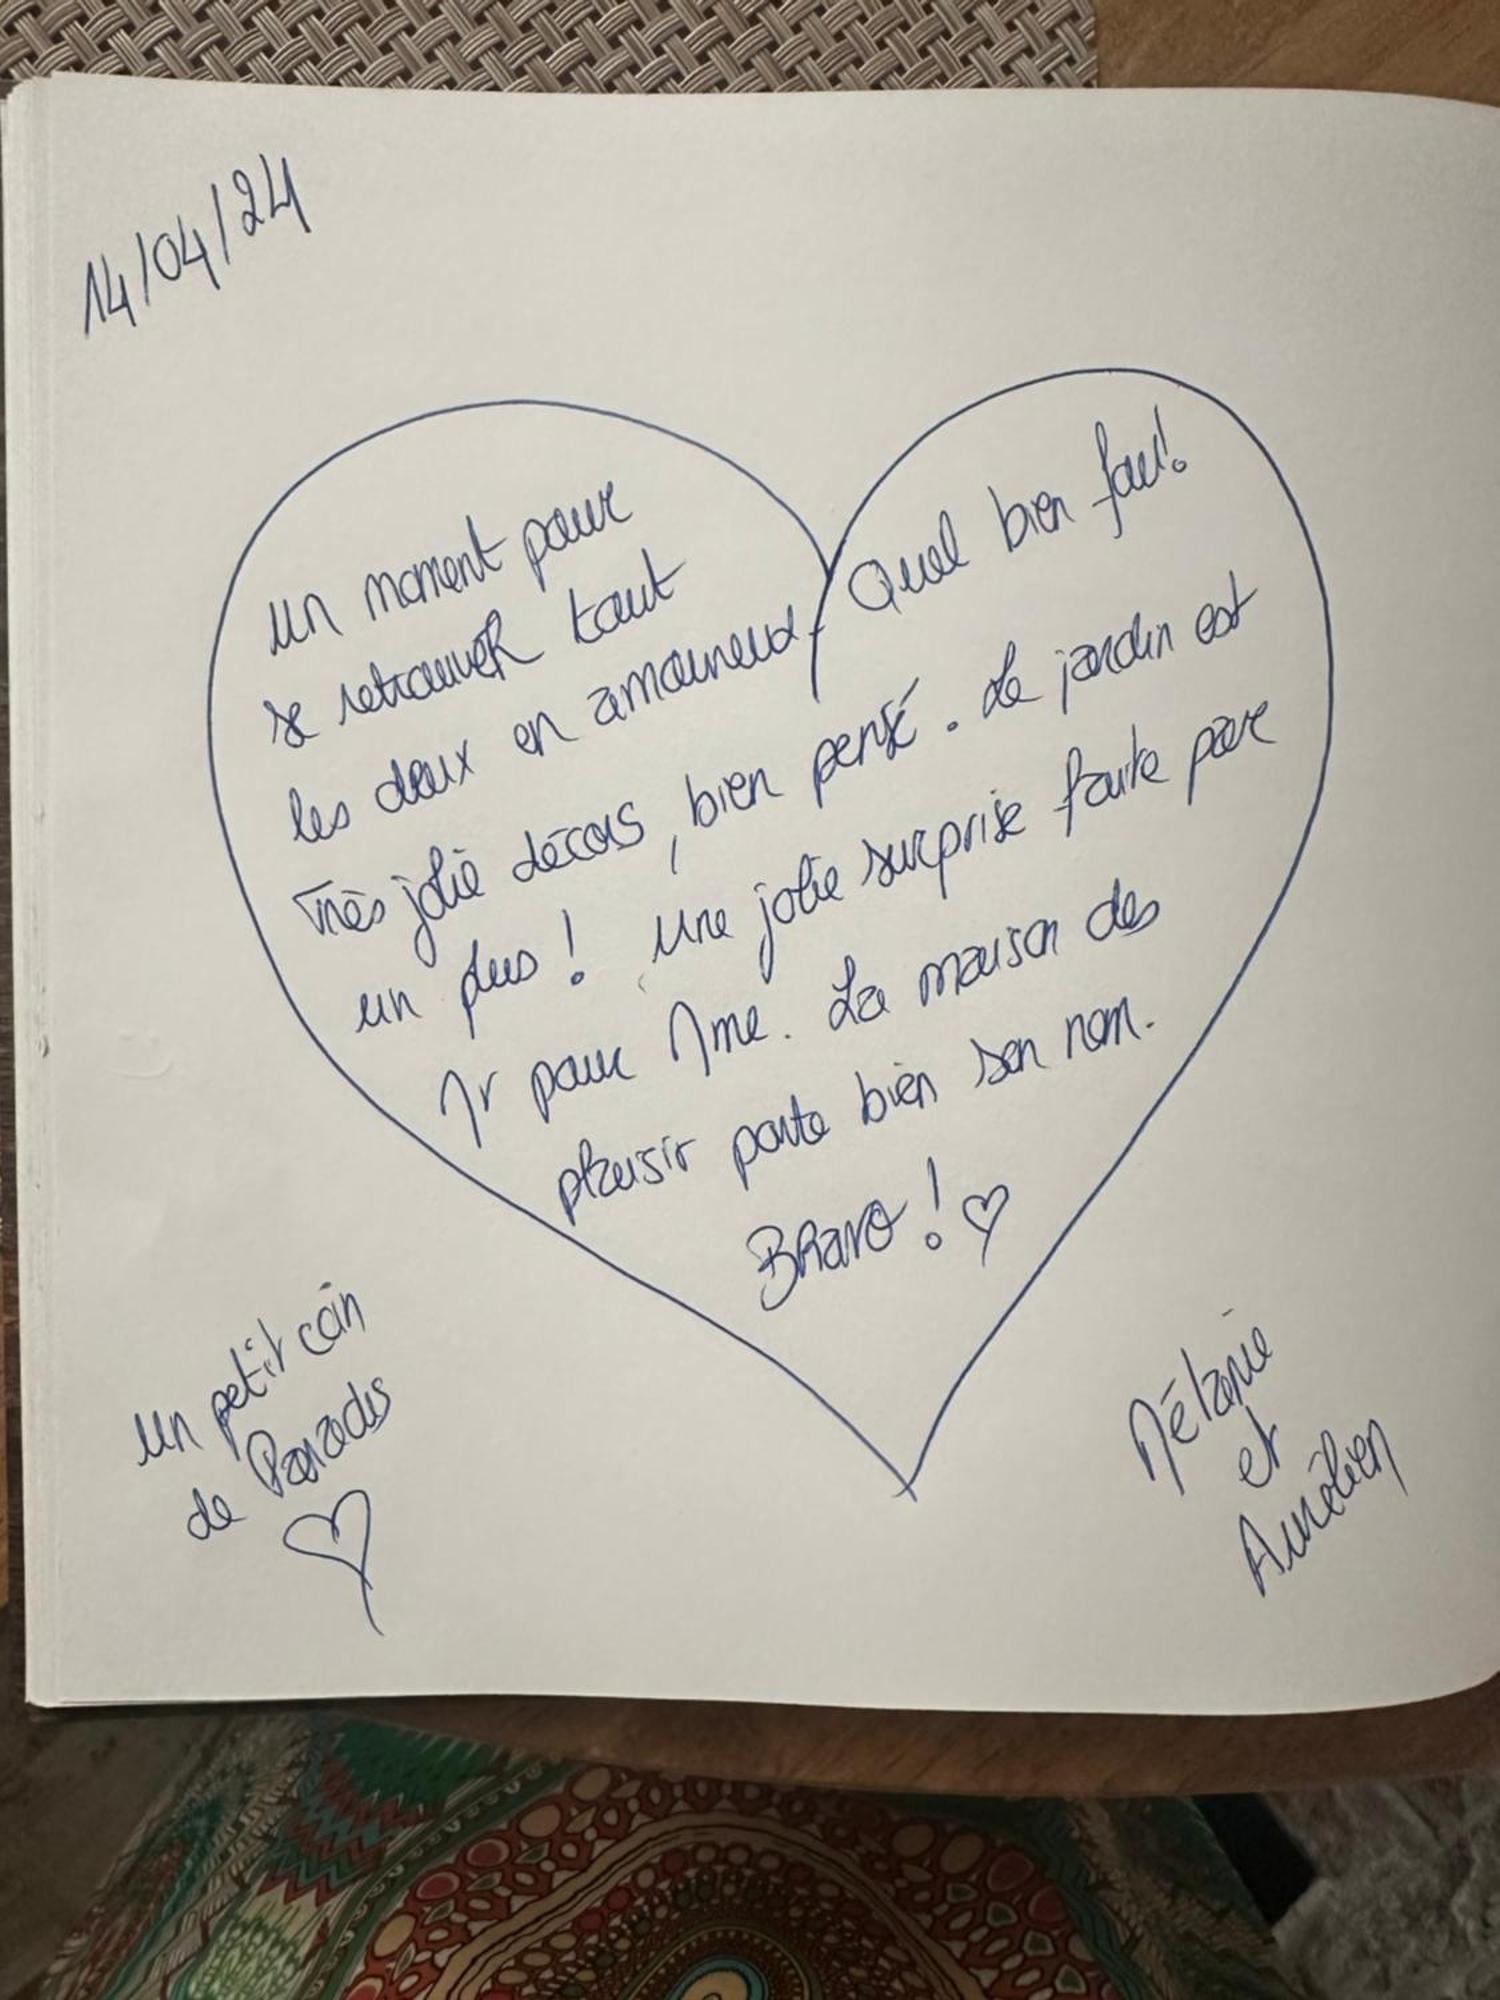 14/04/24
Un moment pour
se retrouver tout
les deux en amoureux. Quel bien fou!
Très jolie décors, bien pensé. Le jardin est
un plus! Une jolie surprise faite par
Mr pour Mme. La maison des
plaisir porte bien son nom.
Bravo! ♡
Un petit coin
de Paradis
♡
Mélanie
et
Aurélien